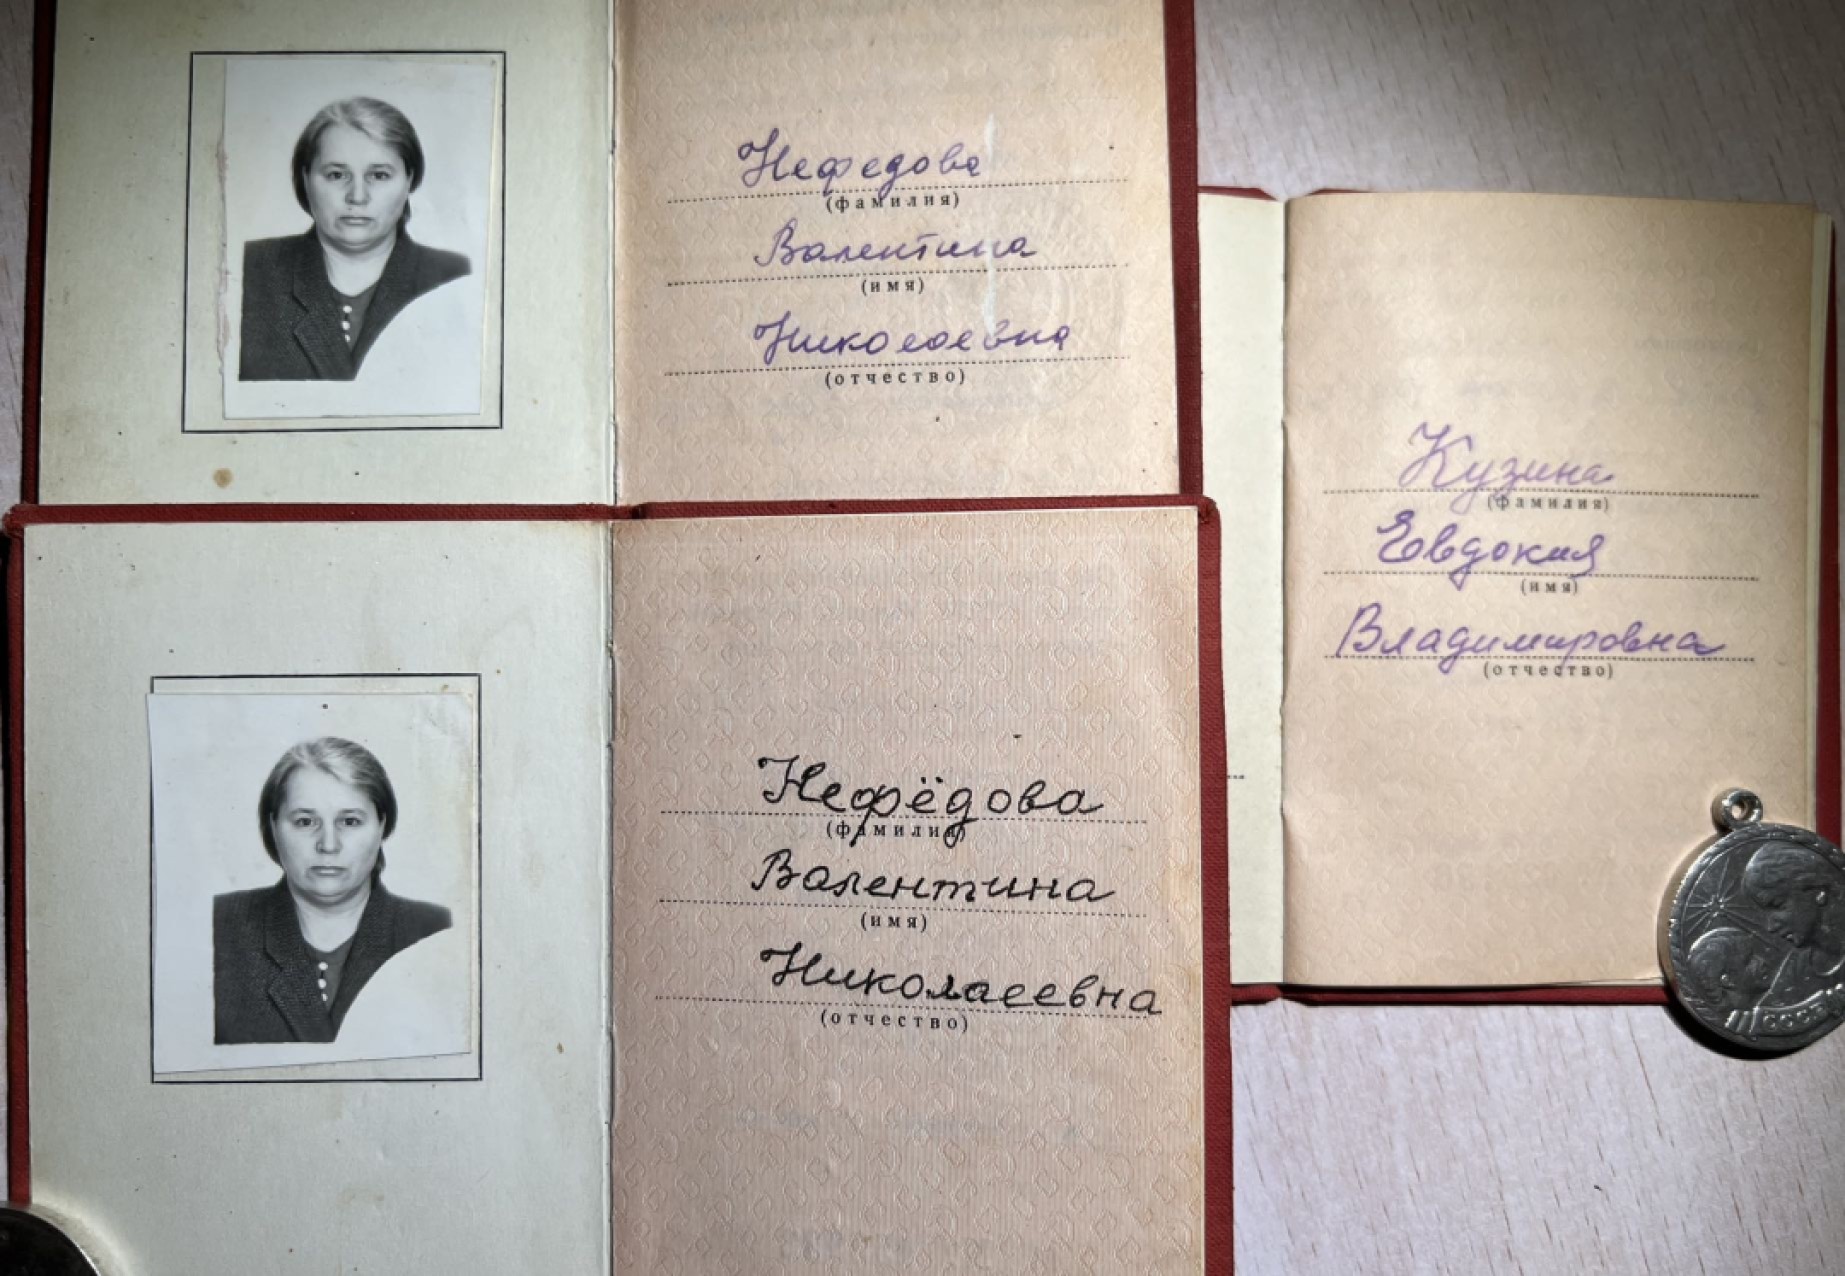 Нефедова
(фамилия)
Валентина
(имя)
Николаевна
(отчество)
Нефёдова
(фамилия)
Валентина
(имя)
Николаеевна
(отчество)
Кузина
(фамилия)
Евдокия
(имя)
Владимировна
(отчество)
СССР